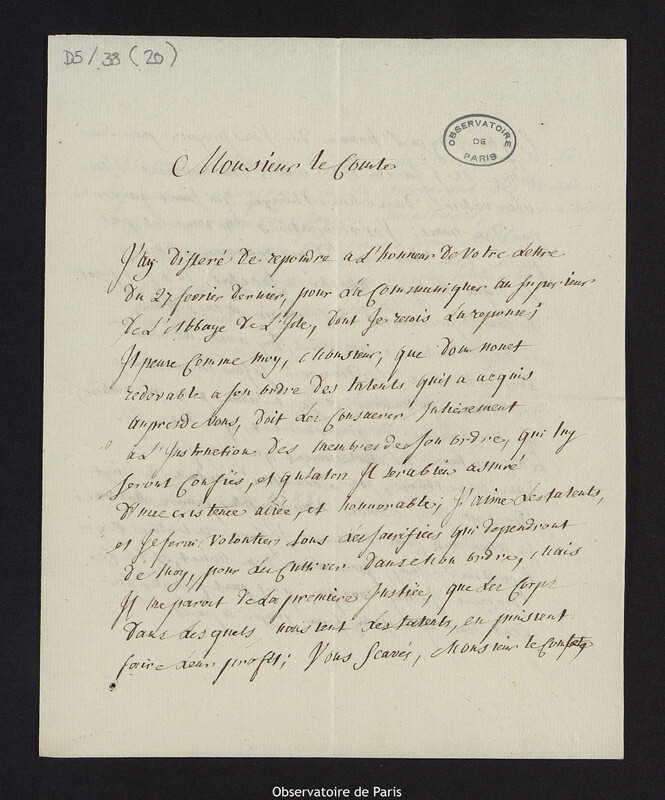 D5/38 (20)
OBSERVATOIRE
DE
PARIS
Monsieur le Comte
J'ay differé de repondre a L'honneur de votre Lettre
du 27 fevrier dernier, pour La Communiquer au superieur
de L'abbaye de L'isle, dont je recois La reponse;
Il pense Comme moy, Monsieur, que dom nouet
redevable a son ordre des talents qu'il a acquis
aupres de vous, doit Les Consacrer Entièrement
a L'Instruction des membres de son ordre, qui luy
seront Confiés, et qu'alors Il sera bien assuré
d'une existence aisée, et honnorable; J'aime Les talents,
et Je ferai volontiers tous Les sacrifices qui dependront
de moy, pour Les Cultiver dans Mon ordre, Mais
Il me paroit de La premiere Justice, que Les Corps
dans Lesquels naissent Les talents, en puissent
faire Leur profit; Vous scavés, Monsieur le Comte
Observatoire de Paris